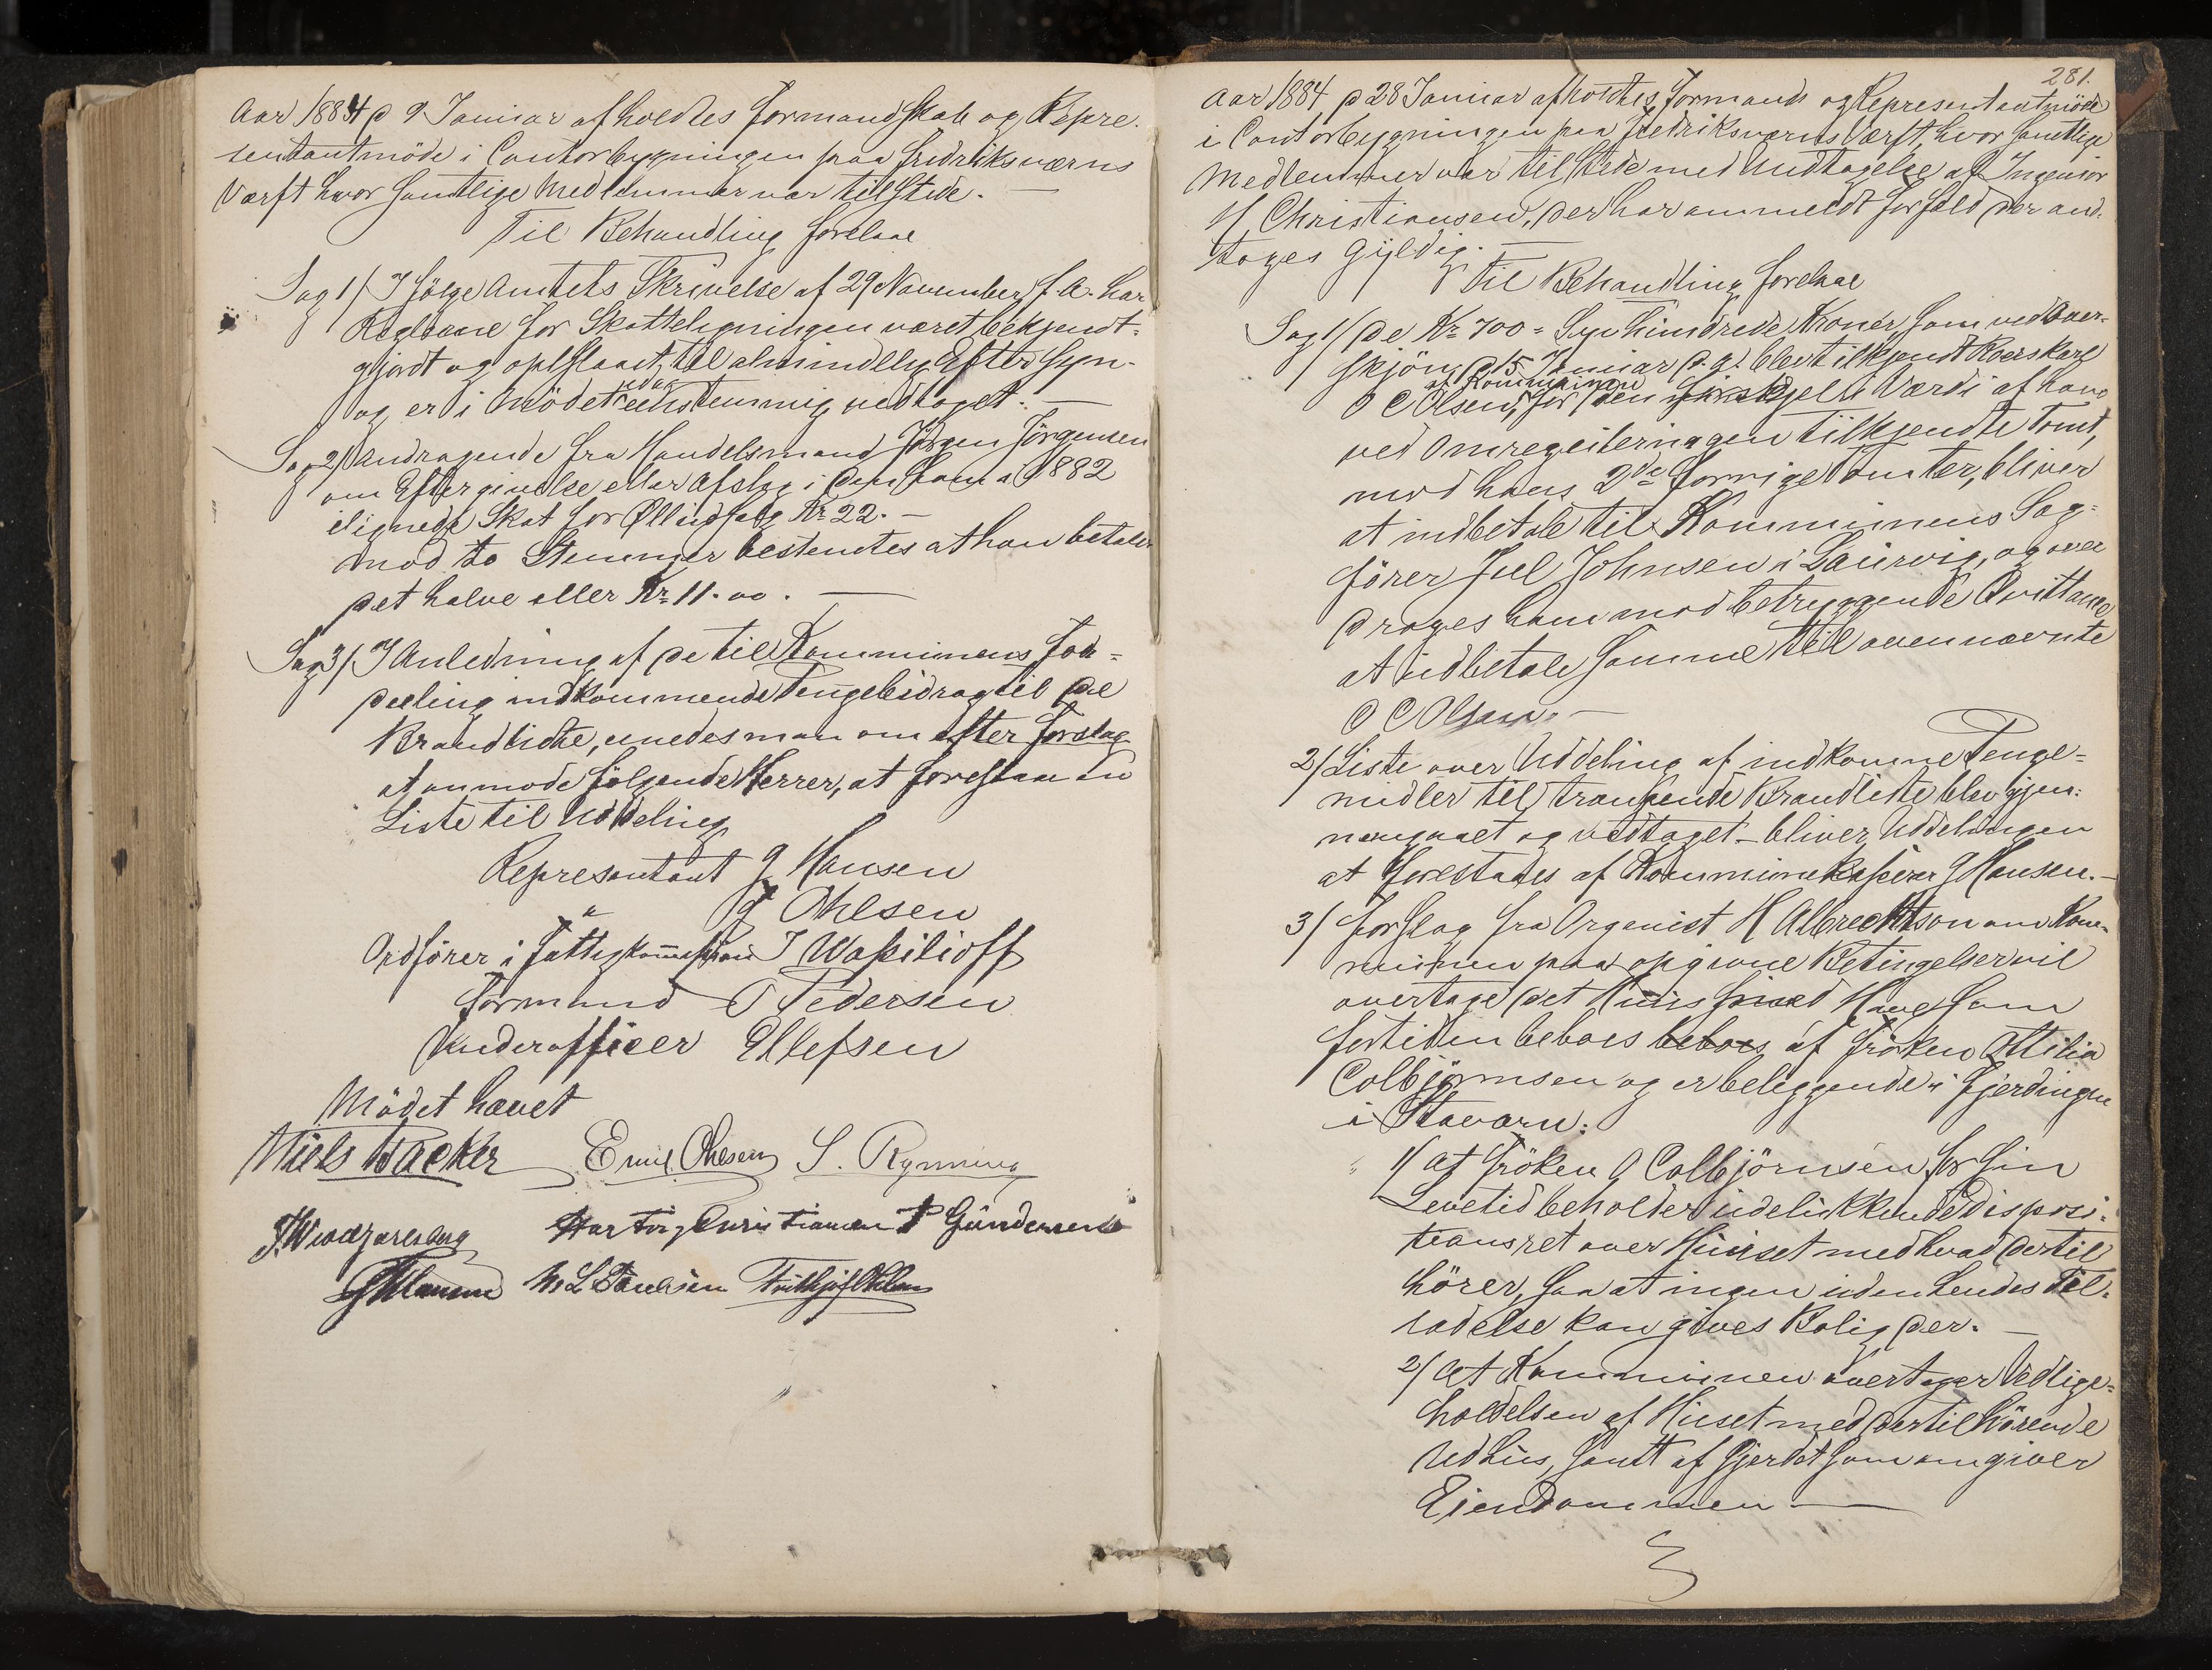 Aar 1884 d 9 Januar afholdtes Formandskab og Repre-
sentantmöde i Contorbygningen paa Fredriksværns
Værft hvor samtlige Medlemmer var tilstede. —
Til Behandling forelaae
Sag 1/ I fölge Amtets Skrivelse af 29 November f. A. har
Reglerne for Skatteligningen været bekjendt-
gjordt og opslaaet til almindelig Eftersyn.
og er i Mödet eenstemmig vedtaget. —
Sag 2/ Andragende fra Handelsmand Jörgen Jörgensen
om Eftergivelse eller Afslag i den ham a 1882
ilignede Skat for Öludsalg Kr 22. —
Mod to Stemmer bestemtes at han betaler
det halve eller Kr 11.00. —
Sag 3/ I Anledning af de til Kommunens For-
deeling indkommende Pengebidrag til de
Brandlidte, enedes man om efter Forslag
at anmode fölgende Herrer, at forestaae en
Liste til Uddeling
Representant G Hansen
" G Ohlsen
Ordförer i Fattigkommissionen I Wasilioff
Formand O Pedersen
Underofficer Ellefsen
Mödet hævet
Niels Backer Emil Ohlsen S. Rynning
Hartvig Christiansen P Gundersen
G Hansen M L Paulsen Fridthjof Ohlsen
281.
Aar 1884 d 28 Januar afholdtes Formands og Representantmöde
i Contorbygningen paa Fredriksværns Værft, hvor samtlige
Medlemmer var tilstede med Undtagelse af Ingeniör
H Christiansen, der har anmeldt Forfald der and-
toges gyldig. —
Til Behandling forelaae
Sag 1/ De Kr 700 = Syv hundrede Kroner, som ved Over-
skjön d 15 Januar d. a. blev tilkjendt Karskarl
O C Olsen, af Kommunen for den forskjell i Værdi af ham
ved Omreguleringen tilkjendte Tomt,
mod hans 2de forrige Tomter, bliver
at indbetale til Kommunens Sag-
förer Juel Johnsen i Laurvig, og over
drages ham mod betryggende Qvittance
at udbetale samme til ovennævnte
O C Olsen. —
2/ Liste over Uddeling af indkomne Penge-
midler til trængende Brandlidte blev gjen-
nemgaaet og vedtaget – bliver Uddelingen
at forestaaes af Kommunekasserer G Hansen. —
3/ Forslag fra Organist H Albrechtson om Kom-
munen paa opgivne Betingelser vil
overtage det Huus med Have som
fortiden beboes beboes af Fröken Ottilia
Colbjörnsen og er beliggende i Fjerdingen
i Staværn:
1/ at Fröken O Colbjörnsen for sin
Levetid beholder udelukkende Disposi-
tionsret over Huuset med hvad dertil
hörer, saa at ingen uden hendes Til-
ladelse kan gives Bolig der. —
2/ At Kommunen overtager Vedlige-
holdelsen af Huset med dertil hörende
Udhus, samt af Gjerdet som omgiver
Eiendommen —